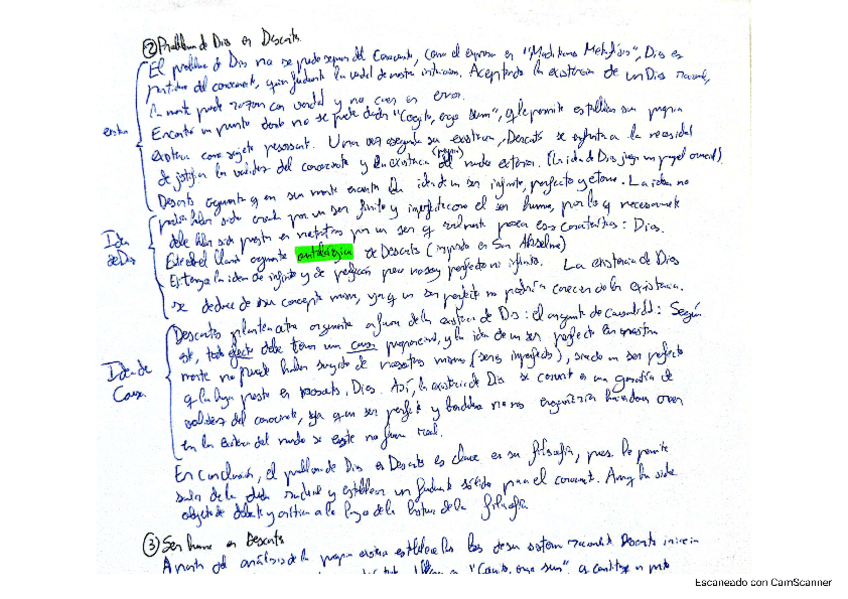 ② Problema de Dios en Descartes.
El problema de Dios no se puede separar del conocimiento, como el expresa en "Meditaciones Metafísicas", Dios es
partidor del conocimiento, quien fundamenta la verdad de nuestras intuiciones. Aceptando la existencia de un Dios racional,
la mente puede razonar con verdad y no caer en error.
Encontró un punto donde no se puede dudar "Cogito, ergo sum", q le permite establecer su propia
existencia como sujeto pensante. Una vez asegurada su existencia, Descartes se enfrenta a la necesidad
de justificar la validez del conocimiento y la existencia del mundo exterior. (La idea de Dios juega un papel crucial).
Descartes argumenta q en su mente encuentra la idea de un ser infinito, perfecto y eterno. La idea no
podría haber sido creada por un ser finito y imperfecto como el ser humano, por lo q necesariamente
debe haber sido puesta en nosotros por un ser q realmente posea esas características: Dios.
Este es el llamado argumento ontológico de Descartes (inspirado en San Anselmo)
Él tenga la idea de infinito y de perfección pero no soy perfecto ni infinito. La existencia de Dios
se deduce de su concepto mismo, ya q un ser perfecto no podría carecer de la existencia.
existencia
Idea
de Dios
Descartes plantea otro argumento a favor de la existencia de Dios: el argumento de causalidad: Según
este, todo efecto debe tener una causa proporcional, y la idea de un ser perfecto en nuestra
mente no puede haber surgido de nosotros mismos (seres imperfectos), sino de un ser perfecto
q la haya puesto en nosotros, Dios. Así, la existencia de Dios se convierte en una garantía de
validez del conocimiento, ya q un ser perfecto y bondadoso no nos engañaría haciéndonos creer
en la existencia del mundo si este no fuera real.
Idea de
Causa.
En conclusión, el problema de Dios en Descartes es clave en su filosofía, pues le permite
salir de la duda radical y establecer un fundamento sólido para el conocimiento. Aunq ha sido
objeto de debate y crítica a lo largo de la historia de la filosofía
③ Ser humano en Descartes
A partir del análisis de la propia existencia establece las bases de su sistema racional. Descartes inicia
"Cogito, ergo sum", se constituye un punto
Escaneado con CamScanner